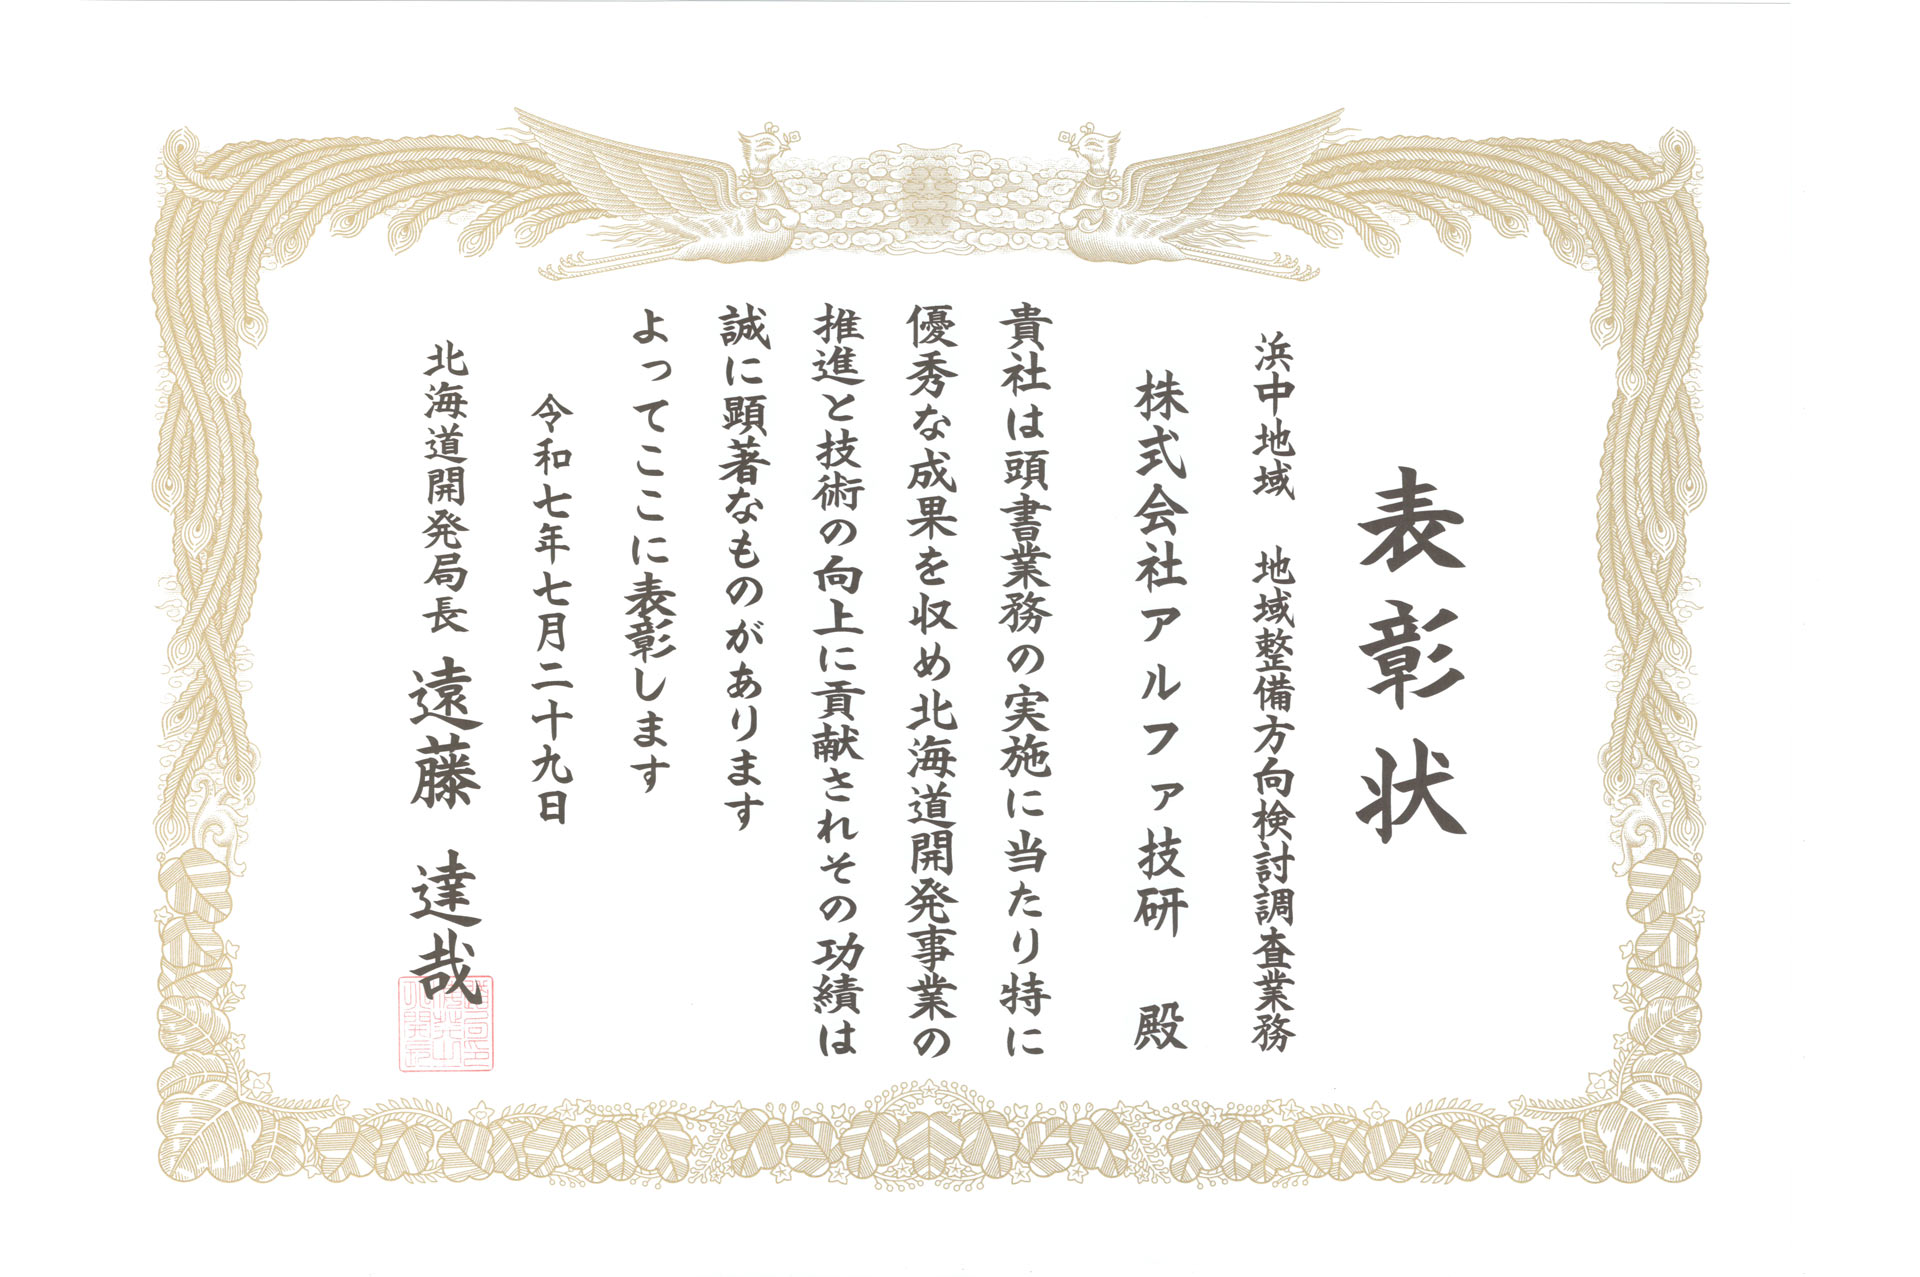 表彰状
浜中地域　地域整備方向検討調査業務
株式会社アルファ技研　殿
貴社は頭書業務の実施に当たり特に
優秀な成果を収め北海道開発事業の
推進と技術の向上に貢献されその功績は
誠に顕著なものがあります
よってここに表彰します
令和七年七月二十九日
北海道開発局長　遠藤　達哉